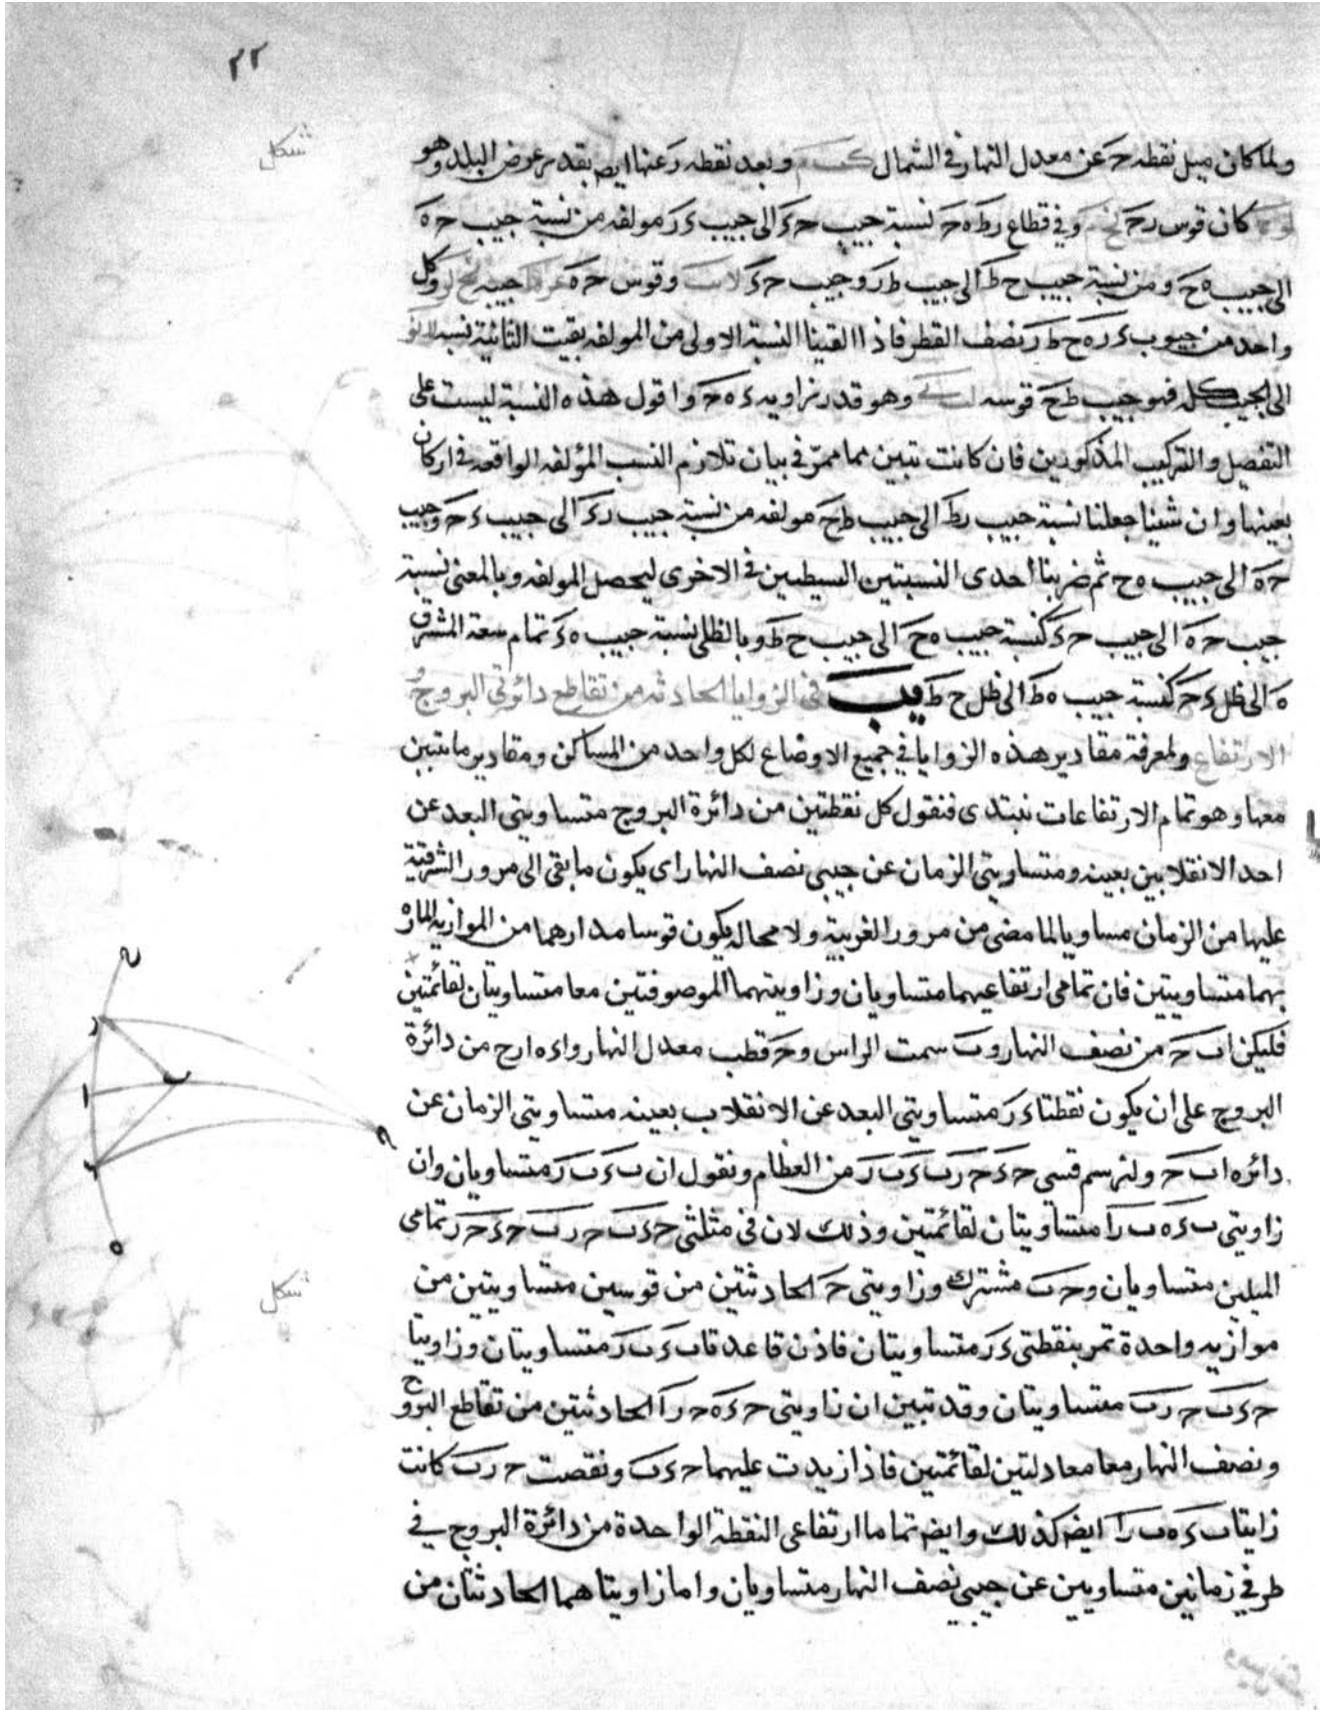 ٢٢
شكل
ولما كان ميل نقطه ح عن معدل النهار في الشمال وبعد نقطه ر عنها ايضا بقدر عرض البلد وهو
كان قوس رح وفي قطاع رط ه ح نسبة جيب ح ء الى جيب ء ر مولفه من نسبة جيب ح ه
الى جيب ه ح ومن نسبة جيب ح ط الى جيب ط ر وجيب ح ء وقوس ح ه جيبه وكل
واحد من جيوب ء ر ه ح ط ر نصف القطر فاذا القينا النسبة الاولى من المولفه بقيت الثانية نسبة
الى الجيب كله فهو جيب ط ح قوسه وهو قدر زاويه ء ه ح واقول هذه النسبة ليست على
التفصيل والتركيب المذكورين فان كانت تبين مما مر في بيان تلازم النسب المؤلفه الواقعه في اركان
بعينها وان شينا جعلنا نسبة جيب رط الى جيب ط ح مولفه من نسبة جيب ر ء الى جيب ء ح وجيب
ح ه الى جيب ه ح ثم ضربنا احدى النسبتين البسيطيين في الاخرى ليحصل المولفه وبالمعنى نسبة
جيب ح ه الى جيب ح ء كنسبة جيب ه ح الى جيب ح ط وبالظلى نسبة جيب ه ء تمام سعة المشرق
ه الى ظل ء ح كنسبة جيب ه ط الى ظل ح ط يب في الزوايا الحادثه من تقاطع دائرتي البروج و
الارتفاع ولمعرفة مقادير هذه الزوايا في جميع الاوضاع لكل واحد من المساكن ومقادير ما تتبين
معها وهو تمام الارتفاعات نبتدى فنقول كل نقطتين من دائرة البروج متساويتى البعد عن
احد الانقلابين بعينه ومتساويتى الزمان عن جيبى نصف النهار اى يكون ما بقى الى مرور الشرقية
عليها من الزمان مساويا لما مضى من مرور الغربية ولا محاله يكون قوسا مدارهما من الموازيه الماره
بهما متساويتين فان تمامى ارتفاعيهما متساويان وزاويتهما الموصوفتين معا متساويتان لقائمتين
فليكن ا ب ح من نصف النهار و ب سمت الراس و ح قطب معدل النهار و ا ء ه ا ر ح من دائرة
البروج على ان يكون نقطتا ء ر متساويتى البعد عن الانقلاب بعينه متساويتى الزمان عن
دائره ا ب ح ولنرسم قسى ح ء ح ر ب ء ب ر من العظام ونقول ان ب ء ب ر متساويان وان
زاويتى ب ء ه ب ر ا متساويتان لقائمتين وذلك لان فى مثلثى ح ء ب ح ر ب ح ء ح ر تمامى
الميلين متساويان و ح ب مشترك وزاويتى ح الحادثتين من قوسين متساويتين من
موازيه واحدة تمر بنقطتى ء ر متساويتان فاذن قاعدتا ب ء ب ر متساويتان وزاويتا
ح ء ب ح ر ب متساويتان وقد تبين ان زاويتى ح ء ه ح ر ا الحادثتين من تقاطع البروج
ونصف النهار معا معادلتين لقائمتين فاذا زيدت عليهما ح ء ب ونقصت ح ر ب كانت
زايتا ب ء ه ب ر ا ايضا كذلك وايضا تماما ارتفاعى النقطة الواحدة من دائرة البروج في
طرفي زمانين متساويين عن جيبى نصف النهار متساويان واما زاويتاهما الحادثتان من
ح
ر
ا
ب
ء
ح
ه
شكل